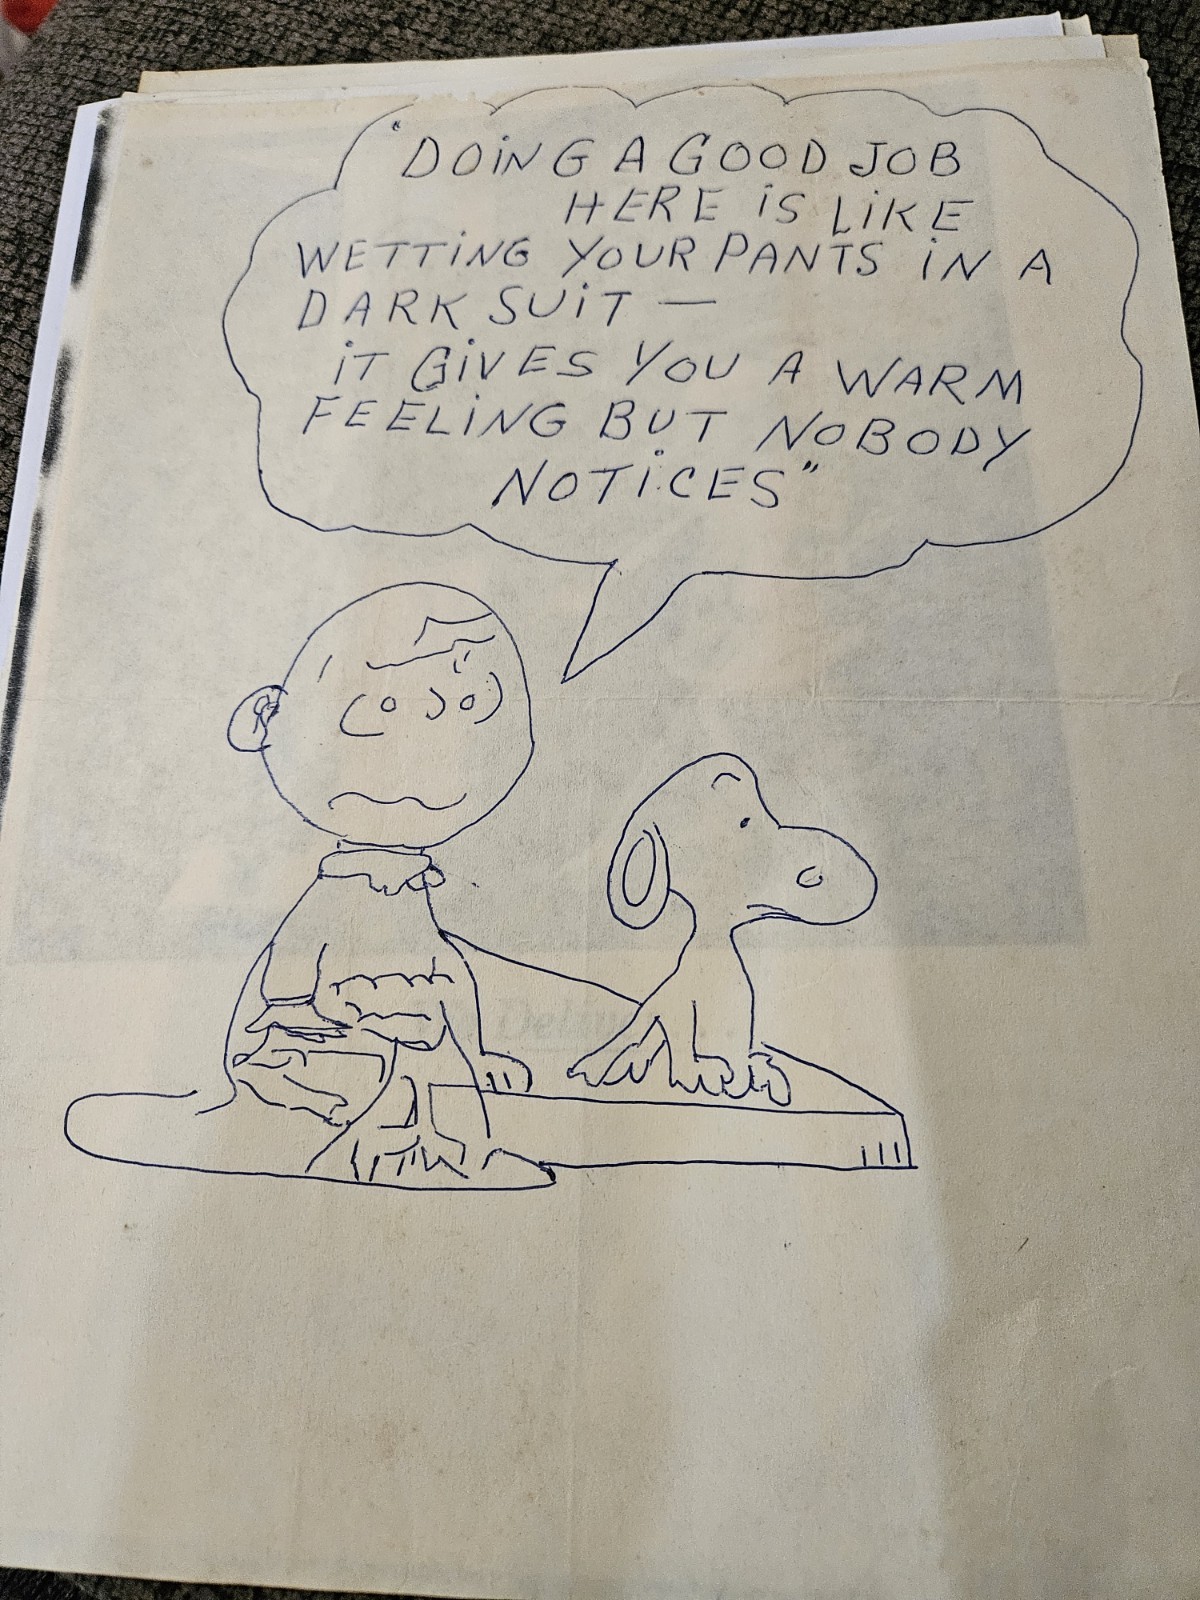 "DOING A GOOD JOB
HERE IS LIKE
WETTING YOUR PANTS IN A
DARK SUIT —
IT GIVES YOU A WARM
FEELING BUT NOBODY
NOTICES"